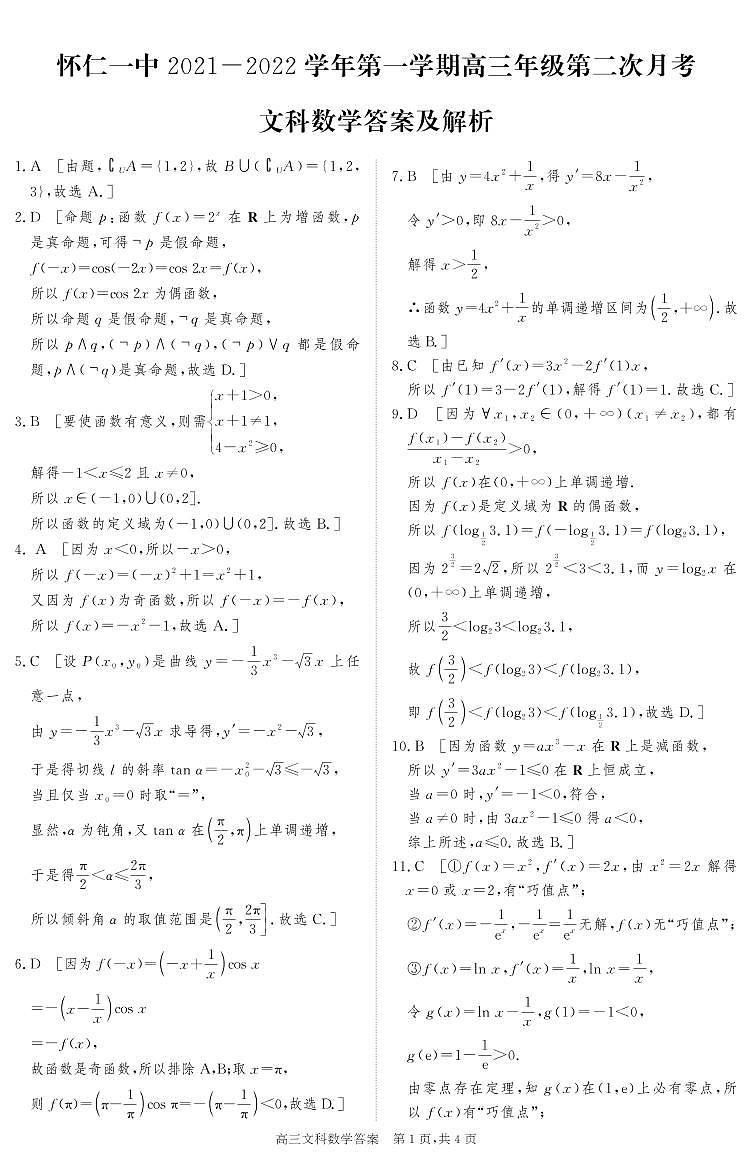 怀仁一中 2021－2022 学年第一学期高三年级第二次月考
文科数学答案及解析
1. A [由题,∁UA={1,2},故 B∪(∁UA)={1,2,
3},故选 A.]
2. D [命题 p:函数 f(x)=2^x 在 R 上为增函数,p
是真命题,可得¬p 是假命题,
f(-x)=cos(-2x)=cos 2x=f(x),
所以 f(x)=cos 2x 为偶函数,
所以命题 q 是假命题,¬q 是真命题,
所以 p∧q,(¬p)∧(¬q),(¬p)∨q 都是假命
题,p∧(¬q)是真命题,故选 D.]
3. B [要使函数有意义,则需{x+1>0, x+1≠1, 4-x²≥0,
解得-1<x≤2 且 x≠0,
所以 x∈(-1,0)∪(0,2].
所以函数的定义域为(-1,0)∪(0,2].故选 B.]
4. A [因为 x<0,所以-x>0,
所以 f(-x)=(-x)²+1=x²+1,
又因为 f(x)为奇函数,所以 f(-x)=-f(x),
所以 f(x)=-x²-1,故选 A.]
5. C [设 P(x₀,y₀)是曲线 y=-1/3x³-√3x 上任
意一点,
由 y=-1/3x³-√3x 求导得,y′=-x²-√3,
于是得切线 l 的斜率 tan α=-x₀²-√3≤-√3,
当且仅当 x₀=0 时取“=”,
显然,α 为钝角,又 tan α 在(π/2,π)上单调递增,
于是得π/2<α≤2π/3,
所以倾斜角 α 的取值范围是(π/2,2π/3].故选 C.]
6. D [因为 f(-x)=(-x+1/x)cos x
=-(x-1/x)cos x
=-f(x),
故函数是奇函数,所以排除 A,B;取 x=π,
则 f(π)=(π-1/π)cos π=-(π-1/π)<0,故选 D.]
7. B [由 y=4x²+1/x,得 y′=8x-1/x²,
令 y′>0,即 8x-1/x²>0,
解得 x>1/2,
∴函数 y=4x²+1/x的单调递增区间为(1/2,+∞).故
选 B.]
8. C [由已知 f′(x)=3x²-2f′(1)x,
所以 f′(1)=3-2f′(1),解得 f′(1)=1.故选 C.]
9. D [因为 ∀x₁,x₂∈(0,+∞)(x₁≠x₂),都有
(f(x₁)-f(x₂))/(x₁-x₂)>0,
所以 f(x)在(0,+∞)上单调递增.
因为 f(x)是定义域为 R 的偶函数,
所以 f(log_{1/2}3.1)=f(-log_{1/2}3.1)=f(log₂3.1),
因为 2^{3/2}=2√2,所以 2^{3/2}<3<3.1,而 y=log₂x 在
(0,+∞)上单调递增,
所以3/2<log₂3<log₂3.1,
故 f(3/2)<f(log₂3)<f(log₂3.1),
即 f(3/2)<f(log₂3)<f(log_{1/2}3.1),故选 D.]
10. B [因为函数 y=ax³-x 在 R 上是减函数,
所以 y′=3ax²-1≤0 在 R 上恒成立,
当 a=0 时,y′=-1<0,符合,
当 a≠0 时,由 3ax²-1≤0 得 a<0,
综上所述,a≤0.故选 B.]
11. C [①f(x)=x²,f′(x)=2x,由 x²=2x 解得
x=0 或 x=2,有“巧值点”;
②f′(x)=-1/e^x,-1/e^x=1/e^x无解,f(x)无“巧值点”;
③f(x)=ln x,f′(x)=1/x,ln x=1/x,
令 g(x)=ln x-1/x,g(1)=-1<0,
g(e)=1-1/e>0.
由零点存在定理,知 g(x)在(1,e)上必有零点,所
以 f(x)有“巧值点”;
高三文科数学答案 第 1 页,共 4 页